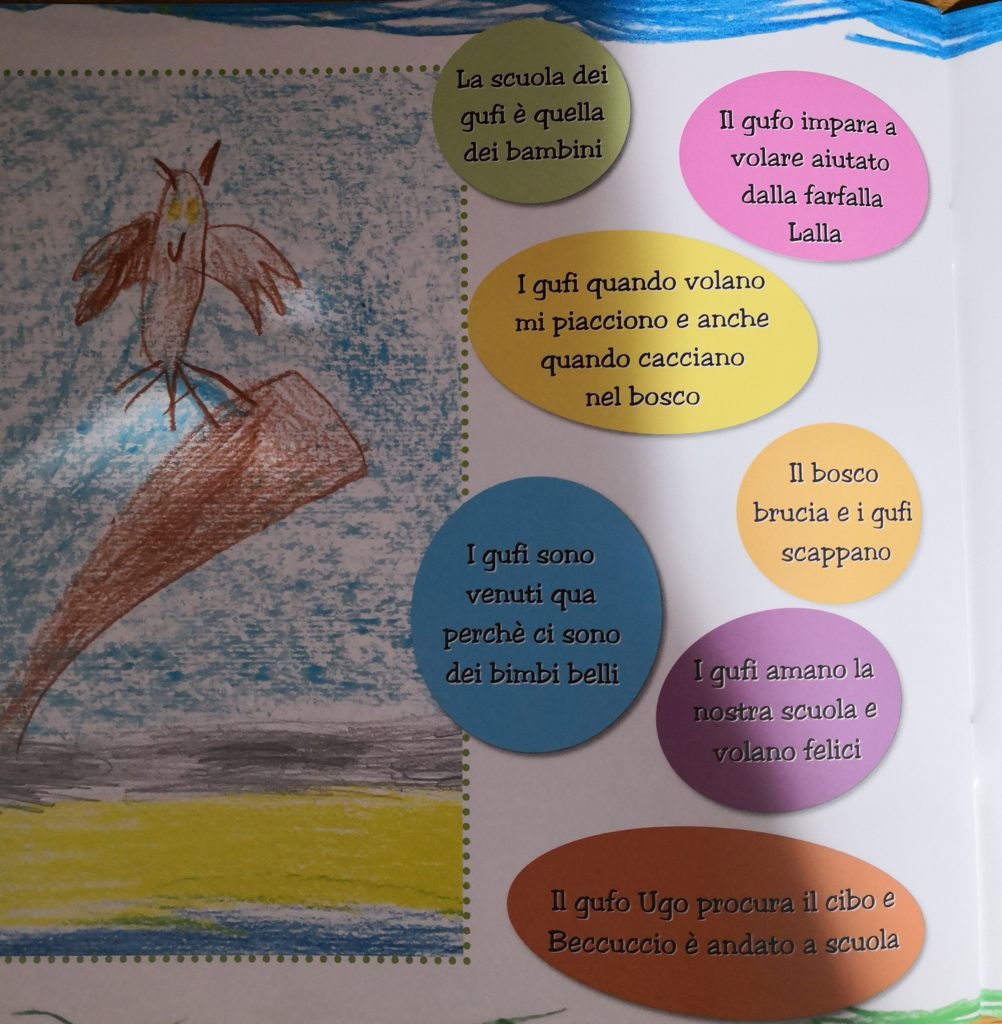 La scuola dei
gufi è quella
dei bambini
Il gufo impara a
volare aiutato
dalla farfalla
Lalla
I gufi quando volano
mi piacciono e anche
quando cacciano
nel bosco
Il bosco
brucia e i gufi
scappano
I gufi sono
venuti qua
perchè ci sono
dei bimbi belli
I gufi amano la
nostra scuola e
volano felici
Il gufo Ugo procura il cibo e
Beccuccio è andato a scuola